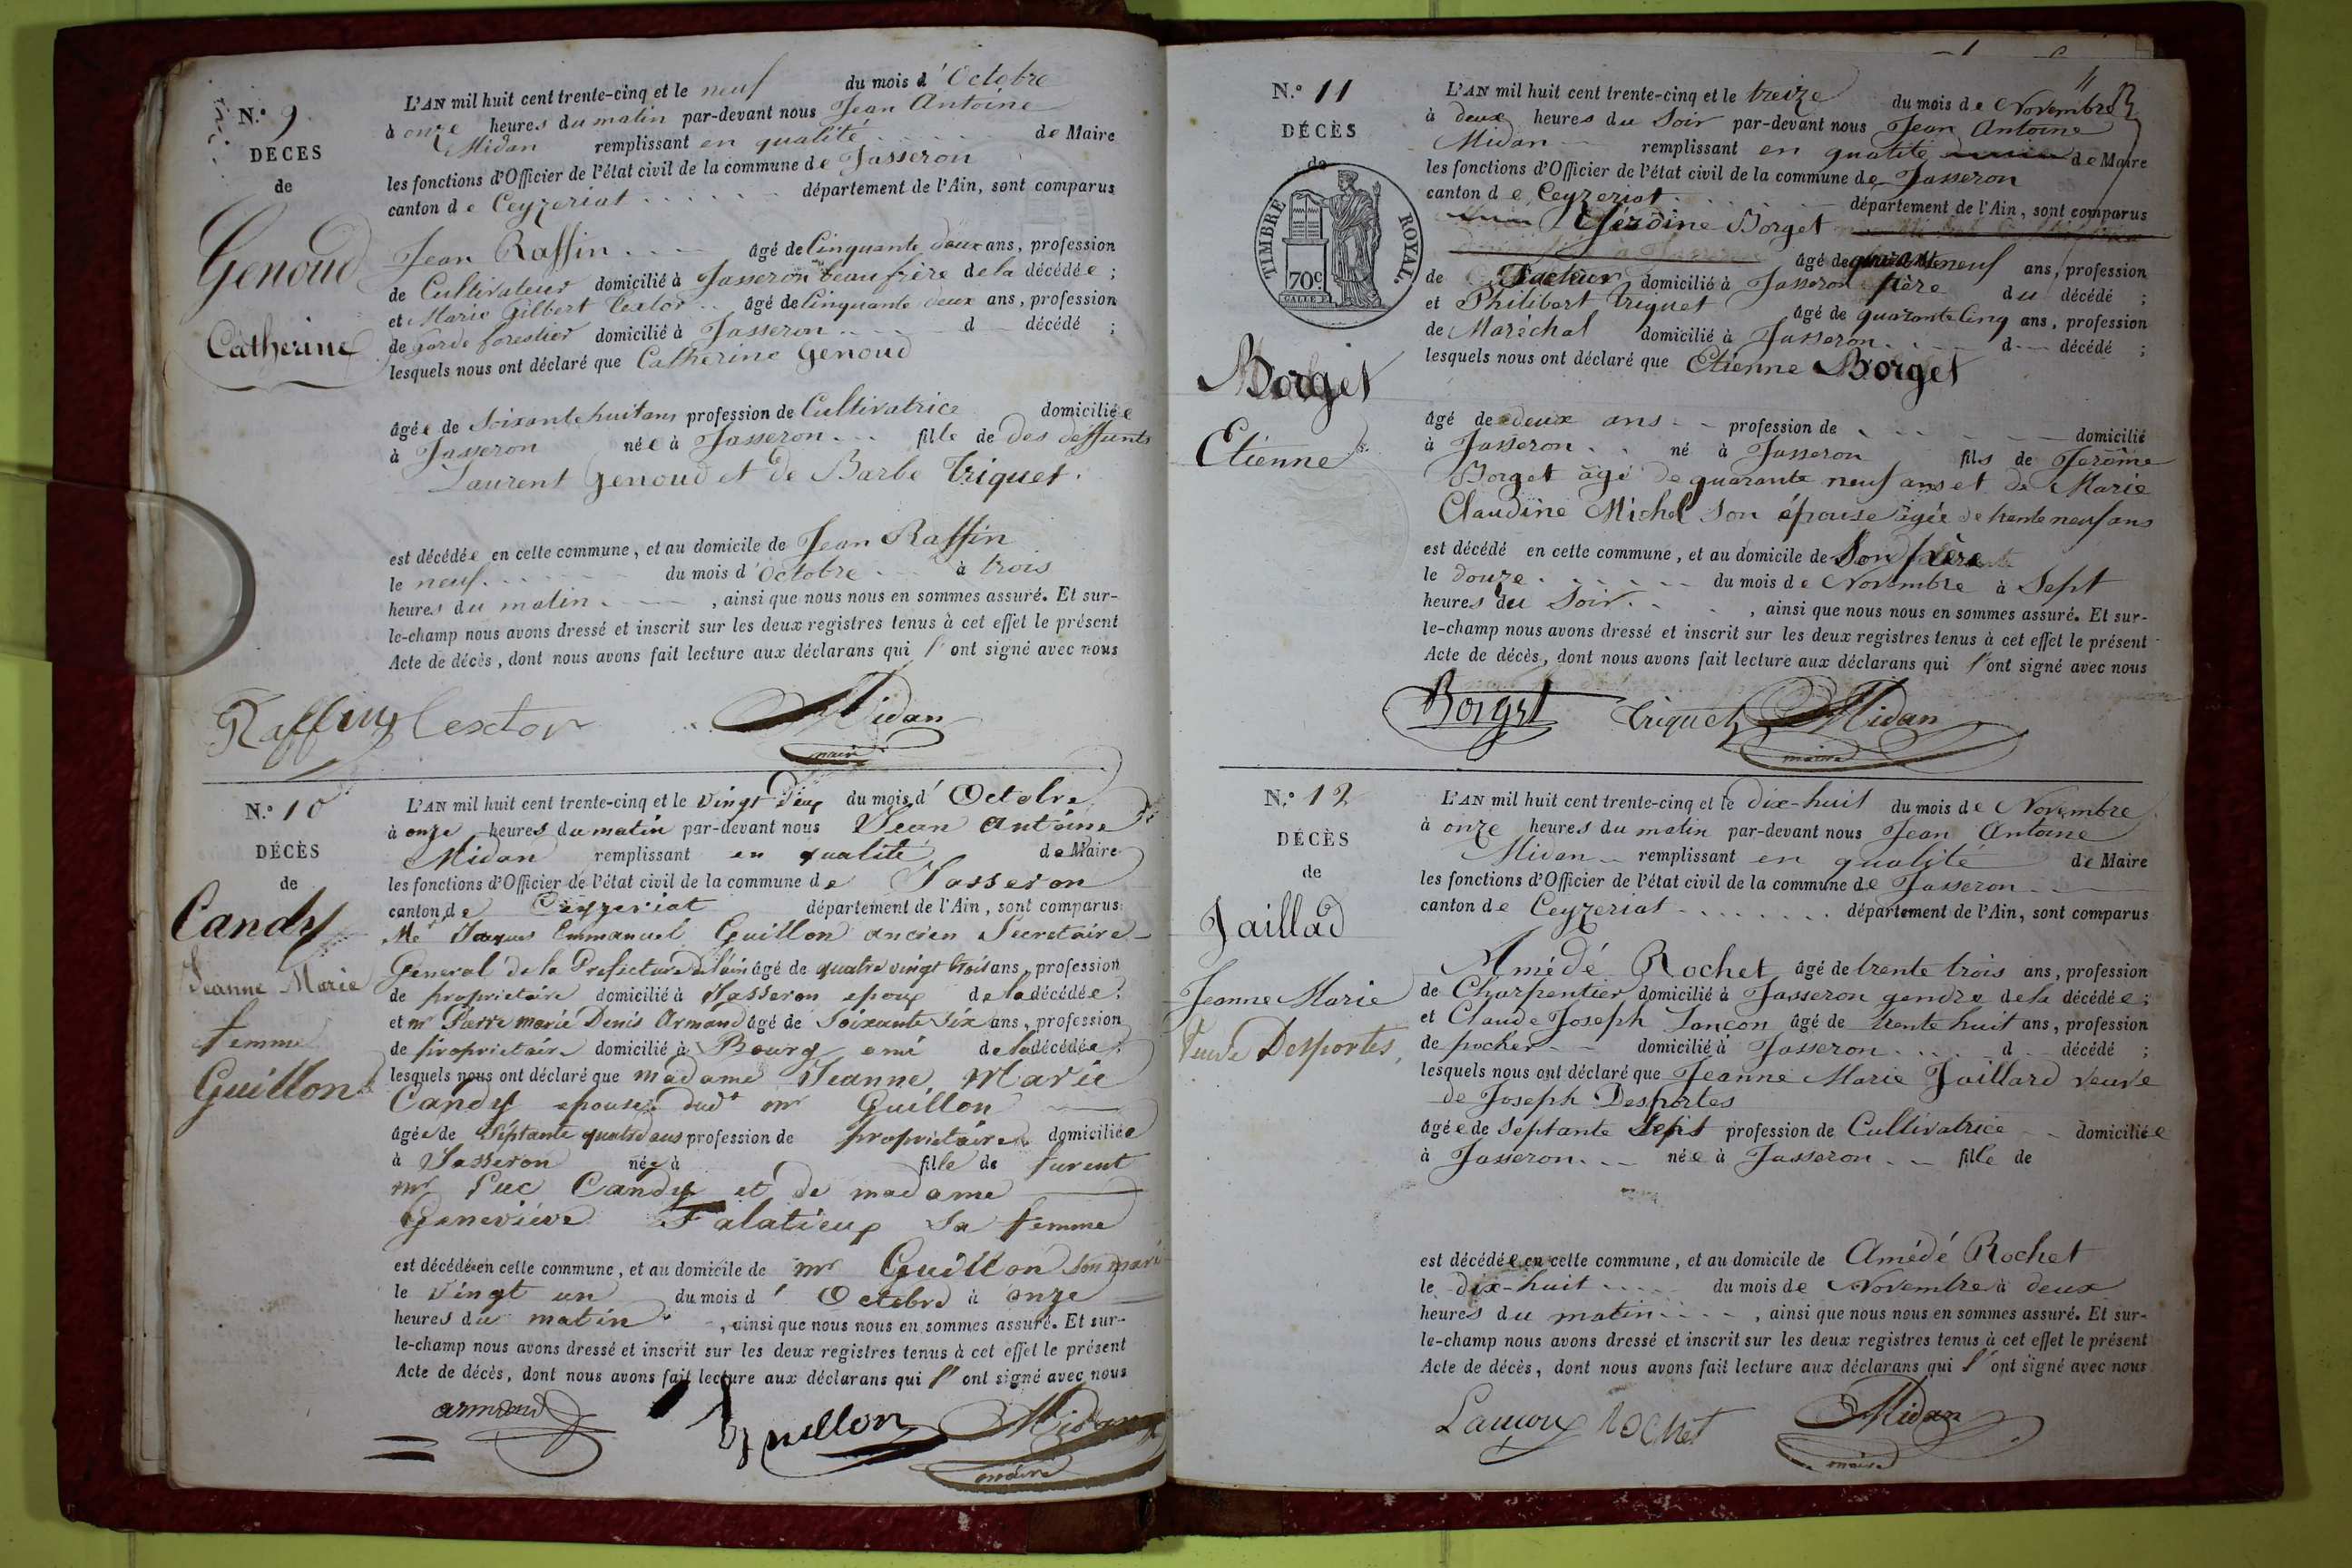 N.° 9.
DÉCÈS
de
Genoud
Catherine
L'AN mil huit cent trente-cinq et le neuf du mois d'Octobre
à onze heures du matin par-devant nous Jean Antoine
Midan remplissant en qualité de Maire
les fonctions d'Officier de l'état civil de la commune de Jasseron
canton de Ceyzeriat département de l'Ain, sont comparus
Jean Raffin âgé de Cinquante deux ans, profession
de Cultivateur domicilié à Jasseron beaufrère de la décédée ;
et Marie Gilbert Textor âgé de Cinquante deux ans, profession
de garde forestier domicilié à Jasseron d décédé ;
lesquels nous ont déclaré que Catherine Genoud
âgée de Soixante huit ans profession de Cultivatrice domiciliée
à Jasseron née à Jasseron fille de des deffunts
Laurent Genoud et de Barbe Triquet.
est décédée en cette commune, et au domicile de Jean Raffin
le neuf du mois d'Octobre à trois
heures du matin , ainsi que nous nous en sommes assuré. Et sur-
le-champ nous avons dressé et inscrit sur les deux registres tenus à cet effet le présent
Acte de décès, dont nous avons fait lecture aux déclarans qui l'ont signé avec nous
Raffin Textor Midan
maire
N.° 10
DÉCÈS
de
Candy
Jeanne Marie
femme
Guillon
L'AN mil huit cent trente-cinq et le vingt deux du mois d'Octobre
à onze heures du matin par-devant nous Jean Antoine
Midan remplissant en qualité de Maire
les fonctions d'Officier de l'état civil de la commune de Jasseron
canton de Ceyzeriat département de l'Ain, sont comparus
Me Jaques Emmanuel Guillon ancien Secretaire
General de la Prefecture de l'ain âgé de quatre vingt trois ans, profession
de proprietaire domicilié à Jasseron epoux de la décédée ;
et mr Pierre Marie Denis Armand âgé de Soixante Six ans, profession
de proprietaire domicilié à Bourg ami de la décédée ;
lesquels nous ont déclaré que madame Jeanne Marie
Candy epouse dudt mr Guillon
âgée de Septante quatre ans profession de proprietaire domiciliée
à Jasseron née à fille de furent
mr Luc Candy et de madame
Genevieve Falatieux Sa femme
est décédée en cette commune, et au domicile de mr Guillon Son mari
le vingt un du mois d'Octobre à onze
heures du matin , ainsi que nous nous en sommes assuré. Et sur-
le-champ nous avons dressé et inscrit sur les deux registres tenus à cet effet le présent
Acte de décès, dont nous avons fait lecture aux déclarans qui l'ont signé avec nous
armand Guillon Midan
maire
11
N.° 11
DÉCÈS
de
TIMBRE ROYAL.
70c
Borget
Etienne
L'AN mil huit cent trente-cinq et le treize du mois de Novembre
à deux heures du Soir par-devant nous Jean Antoine
Midan remplissant en qualité de Maire
les fonctions d'Officier de l'état civil de la commune de Jasseron
canton de Ceyzeriat département de l'Ain, sont comparus
Jérôme Borget
âgé de quarante neuf ans, profession
de Facteur domicilié à Jasseron père du décédé ;
et Philibert Triquet âgé de quarante Cinq ans, profession
de Maréchal domicilié à Jasseron d décédé ;
lesquels nous ont déclaré que Etienne Borget
âgé de deux ans profession de domicilié
à Jasseron né à Jasseron fils de Jerôme
Borget âgé de quarante neuf ans et de Marie
Claudine Michel Son épouse âgée de trente neuf ans
est décédé en cette commune, et au domicile de Son père
le douze du mois de Novembre à Sept
heures du Soir , ainsi que nous nous en sommes assuré. Et sur-
le-champ nous avons dressé et inscrit sur les deux registres tenus à cet effet le présent
Acte de décès, dont nous avons fait lecture aux déclarans qui l'ont signé avec nous
Borget Triquet Midan
maire
N.° 12
DÉCÈS
de
Jaillad
Jeanne Marie
Veuve Desportes,
L'AN mil huit cent trente-cinq et le dix-huit du mois de Novembre
à onze heures du matin par-devant nous Jean Antoine
Midan remplissant en qualité de Maire
les fonctions d'Officier de l'état civil de la commune de Jasseron
canton de Ceyzeriat département de l'Ain, sont comparus
Amédé Rochet âgé de trente trois ans, profession
de Charpentier domicilié à Jasseron gendre de la décédée ;
et Claude Joseph Lançon âgé de trente huit ans, profession
de domicilié à Jasseron d décédé ;
lesquels nous ont déclaré que Jeanne Marie Jaillard veuve
de Joseph Desportes
âgée de Septante Sept profession de Cultivatrice domiciliée
à Jasseron née à Jasseron fille de
est décédée en cette commune, et au domicile de Amédé Rochet
le dix-huit du mois de Novembre à deux
heures du matin , ainsi que nous nous en sommes assuré. Et sur-
le-champ nous avons dressé et inscrit sur les deux registres tenus à cet effet le présent
Acte de décès, dont nous avons fait lecture aux déclarans qui l'ont signé avec nous
Lancon Rochet Midan
maire